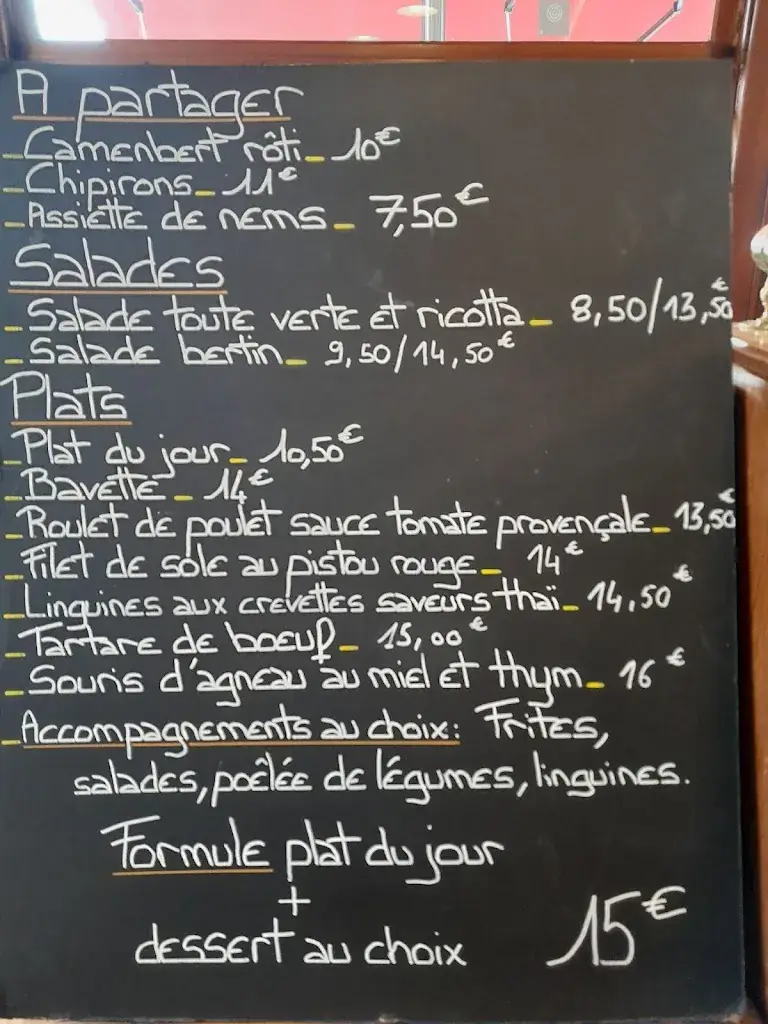 A partager
_Camenbert rôti_ 10€
_Chipirons_ 11€
_Assiette de nems_ 7,50€
Salades
_Salade toute verte et ricotta_ 8,50/13,50€
_Salade bertin_ 9,50/14,50€
Plats
_Plat du jour_ 10,50€
_Bavette_ 14€
_Roulet de poulet sauce tomate provençale_ 13,50€
_Filet de sole au pistou rouge_ 14€
_Linguines aux crevettes saveurs thaï_ 14,50€
_Tartare de boeuf_ 15,00€
_Souris d'agneau au miel et thym_ 16€
_Accompagnements au choix: Frites,
salades, poêlée de légumes, linguines.
Formule plat du jour
+
dessert au choix 15€